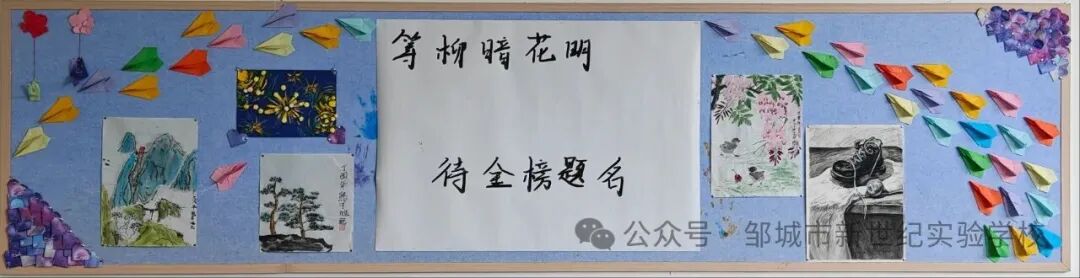 等柳暗花明
待金榜题名
公众号·邹城市新世纪实验学校